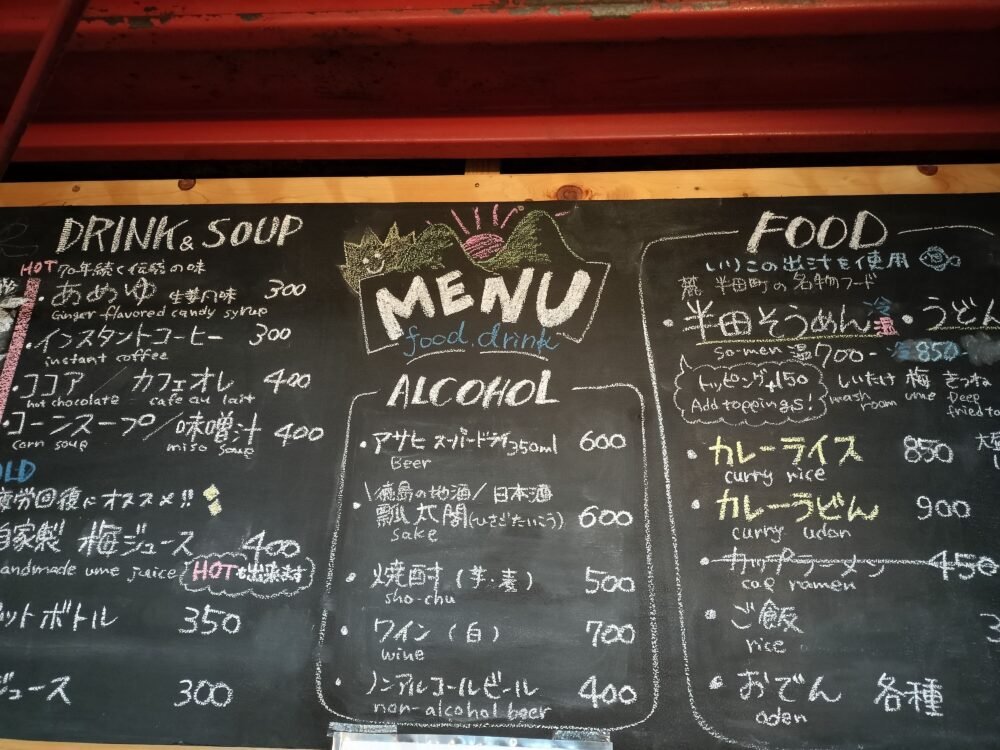 DRINK & SOUP
HOT 70年続く伝統の味
・あめゆ 生姜風味 300
Ginger-flavored candy syrup
・インスタントコーヒー 300
instant coffee
・ココア / カフェオレ 400
hot chocolate cafe au lait
・コーンスープ / 味噌汁 400
corn soup miso soup
OLD
疲労回復にオススメ!!
自家製 梅ジュース 400
andmade ume juice HOTも出来ます
ットボトル 350
ジュース 300
MENU
food.drink
ALCOHOL
・アサヒ スーパードライ350ml 600
Beer
徳島の地酒/日本酒
・瓢太閤(ひさごたいこう) 600
sake
・焼酎(芋・麦) 500
sho-chu
・ワイン(白) 700
wine
・ノンアルコールビール 400
non-alcohol beer
FOOD
いりこの出汁を使用
半田町の名物フード
・半田そうめん 冷 温 ・うどん
so-men 温700- 冷850-
トッピング+150 しいたけ 梅 きつね
Add toppings! mash room ume Deep fried to
・カレーライス 850
curry rice
・カレーうどん 900
curry udon
カップラーメン 450
cap ramen
・ご飯 3
rice
・おでん 各種
oden